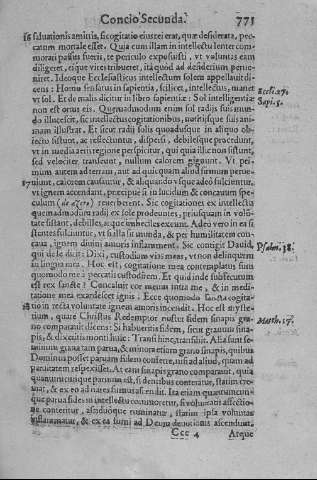 Concio Secunda. 771
salutationis amittis, si cogitatio eiusce erat, quæ desiderata, pec-
catum mortale esset. Quia cum illam in intellectu lenter com-
morari passus fueris, te periculo exposuisti, vt voluntas eam
diligeret, eique vires tribueret, ita quod ad desiderium perue-
niret. Ideoque Ecclesiasticus intellectum solem appellauit di-
cens: Homo sensatus in sapientia, scilicet, intellectus, manet
vt sol. Et de malis dicitur in libro sapientiæ: Sol intelligentiæ
non est ortus eis. Quemadmodum enim sol radijs suis mun-
do illucescit, sic intellectus cogitationibus, notitijsque suis ani-
mam illustrat. Et sicut radij solis quoadusque in aliquo ob-
iecto sistunt, ac reflectuntur, dispersi, debilesque procedunt,
vt in media aeris regione perspicitur, qui quia illic non sistunt,
sed velociter transeunt, nullum calorem gignunt. Vt pri-
mum autem ad terram, aut ad quic quam aliud firmum perue-
niunt, calorem causantur, & aliquando vsque adeo sufficiuntur,
vt ignem accendant, præcipuè si in lucidum & concauum spe-
culum (de azero) reuerberent. Sic cogitationes ex intellectu
quemadmodum radij ex sole prodeuntes, priusquam in volun-
tate sistant, debiles, atque imbecilles exeunt. Adeo vero in ea si
stentes sufficiuntur, vt si illa sit munda, & per humilitatem con-
caua, ignem diuini amoris inflamment. Sic contigit Dauid,
qui de se dicit: Dixi, custodiam vias meas, vt non delinquam
in lingua mea. Hoc est, cogitatione mea contemplatus sum
quomodo mea peccatis custodirem. Et quid inde subsecutum
est rex sancte? Concaluit cor meum intra me, & in medi-
tatione mea exardescet ignis: Ecce quomodo sancta cogita-
tio in recta voluntate ignem amoris incendit. Hoc est myste-
rium, quare Christus Redemptor noster fidem sinapis gra-
no comparauit dicens: Si habueritis fidem, sicut granum sina-
pis, & dixeritis monti huic: Transi hinc, transibit. Alia sunt se-
minum grana tam parua, & minora etiam grano sinapis, quibus
Dominus posset paruam fidem conferre, ius si ad aliud, quam ad
paruitatem respexisset. At eam sinapis grano comparauit, quia
quantumcunque paruum est, si dentibus conteratur, statim cre-
mat, & ex eo ad nares fumus ascendit. Ita etiam quantumcun-
que parua fides in intellectu commoretur, si voluntatis affectio-
ne conteritur, assiduoque ruminatur, statim ipsa voluntas
inflammatur, & ex ea fumi ad Deum deuotionis ascendunt.
Ccc 4 Atque
Eccli. 27.
Sapi. 5.
Psalm. 38.
Matth. 17.